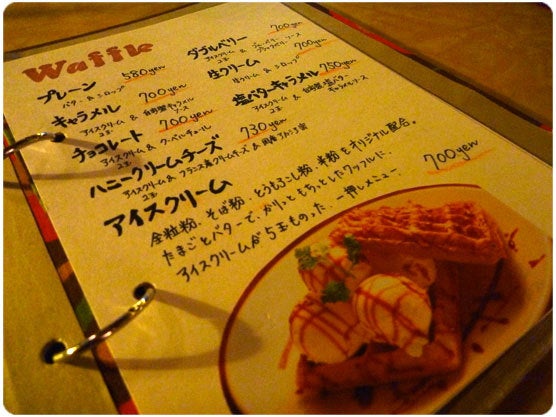 Waffle
プレーン 580yen
バター & シロップ
キャラメル 700yen
アイスクリーム & 自家製キャラメル
2玉 ソース
チョコレート 700yen
アイスクリーム & クーベルチュール
2玉
ハニークリームチーズ 730yen
アイスクリーム & フランス産クリームチーズ & 国産
2玉
アイスクリーム 700yen
全粒粉、そば粉、とうもろこし粉、米粉をオリジナル配合。
たまごとバターで、かりっともちっとしたワッフルに、
アイスクリームが5玉ものった、一押しメニュー。
ダブルベリー 700yen
アイスクリーム & ブルーベリー
2玉 ブラックベリーソース
生クリーム 700yen
生クリーム & シロップ
塩バターキャラメル 750yen
アイスクリーム & 自家製塩バター
2玉 キャラメルソース